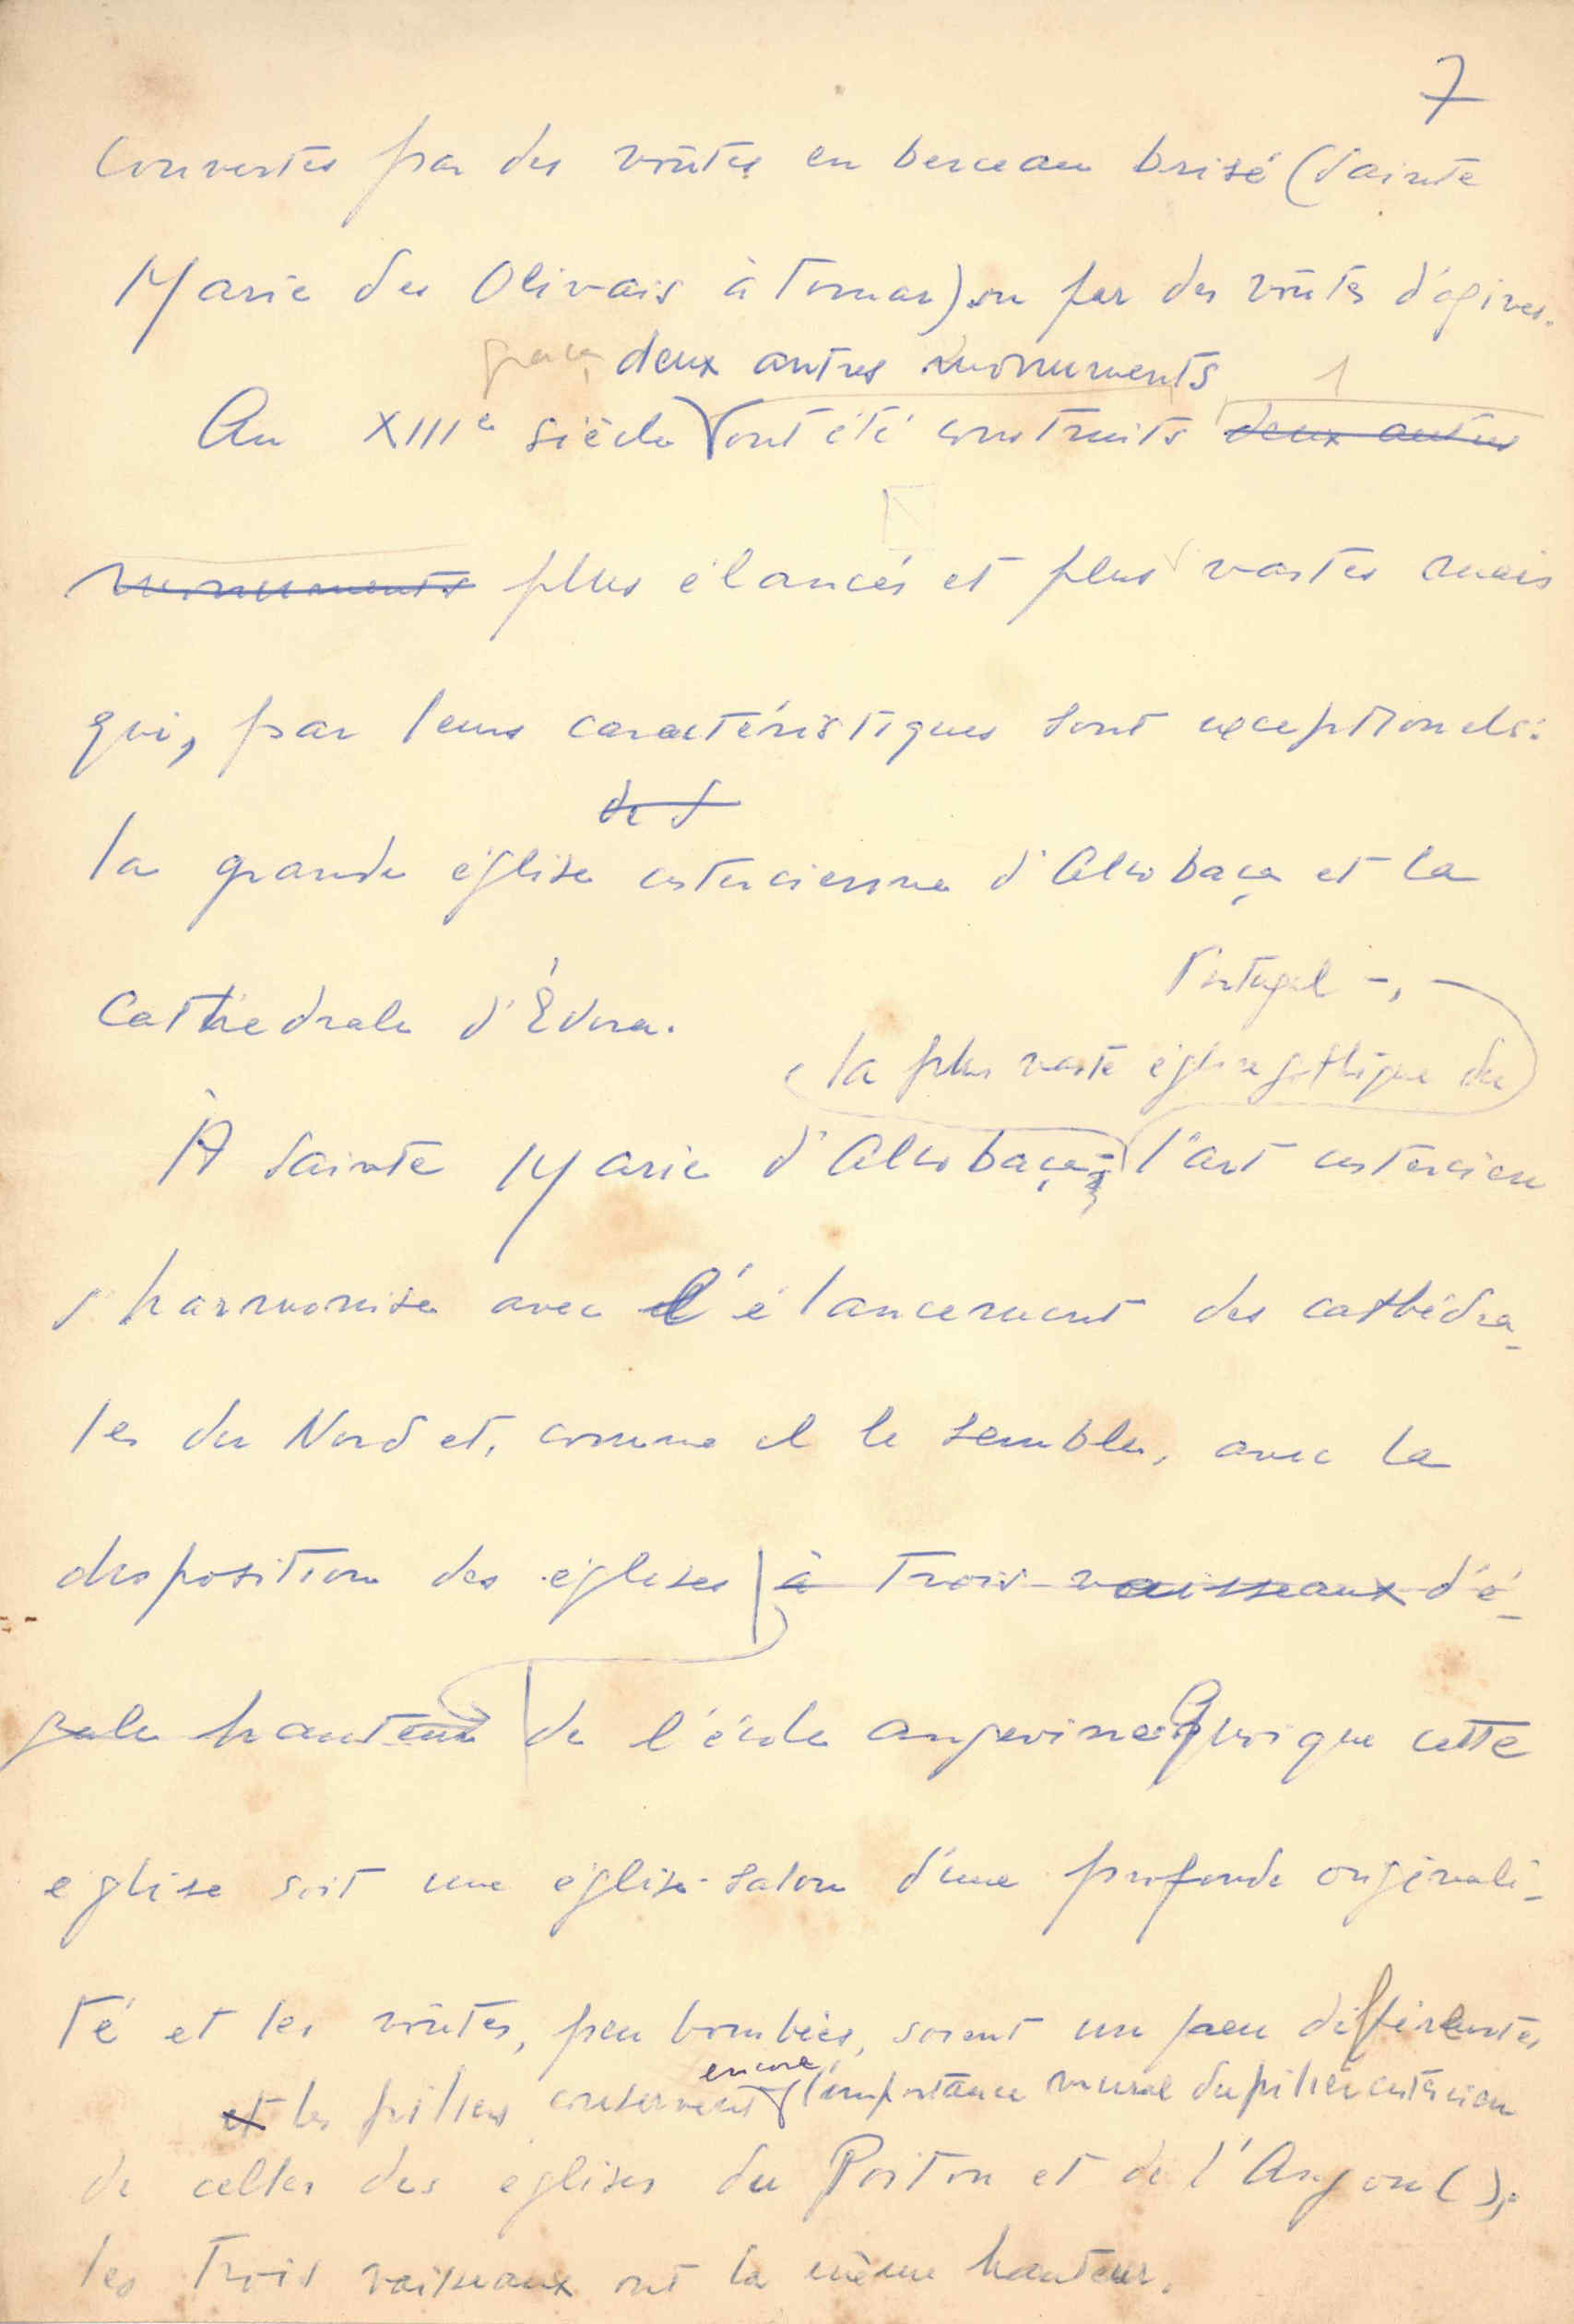 7
Couvertes par des voûtes en berceau brisé (Sainte
Marie des Olivais à Tomar) ou par des voûtes d'ogives.
deux autres monuments 1
Au XIIIe siècle ont été construits deux autres
monuments plus élancés et plus vastes mais
qui, par leurs caractéristiques sont exceptionels:
de S
la grande église cistercienne d'Alcobaça et la
Cathédrale d'Évora.
Portugal -,
la plus vaste église gothique du
À Sainte Marie d'Alcobaça, l'art cistercien
s'harmonise avec l'élancement des cathédra-
les du Nord et, comme il le semble, avec la
disposition des églises à trois vaisseaux d'é-
gale hauteur de l'école angevine. Quoique cette
église soit une église-salon d'une profonde originali-
té et les voûtes, peu bombées, soient un peu différentes
encore
et les piliers conservent l'importance murale du pilier cistercien
de celles des églises du Poitou et de l'Anjou ( ),
les trois vaisseaux ont la même hauteur.